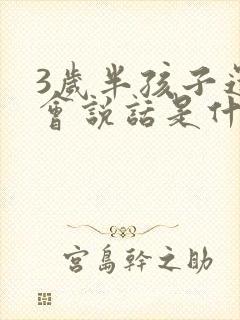 3歲半孩子還
會說話是什
宮島幹之助